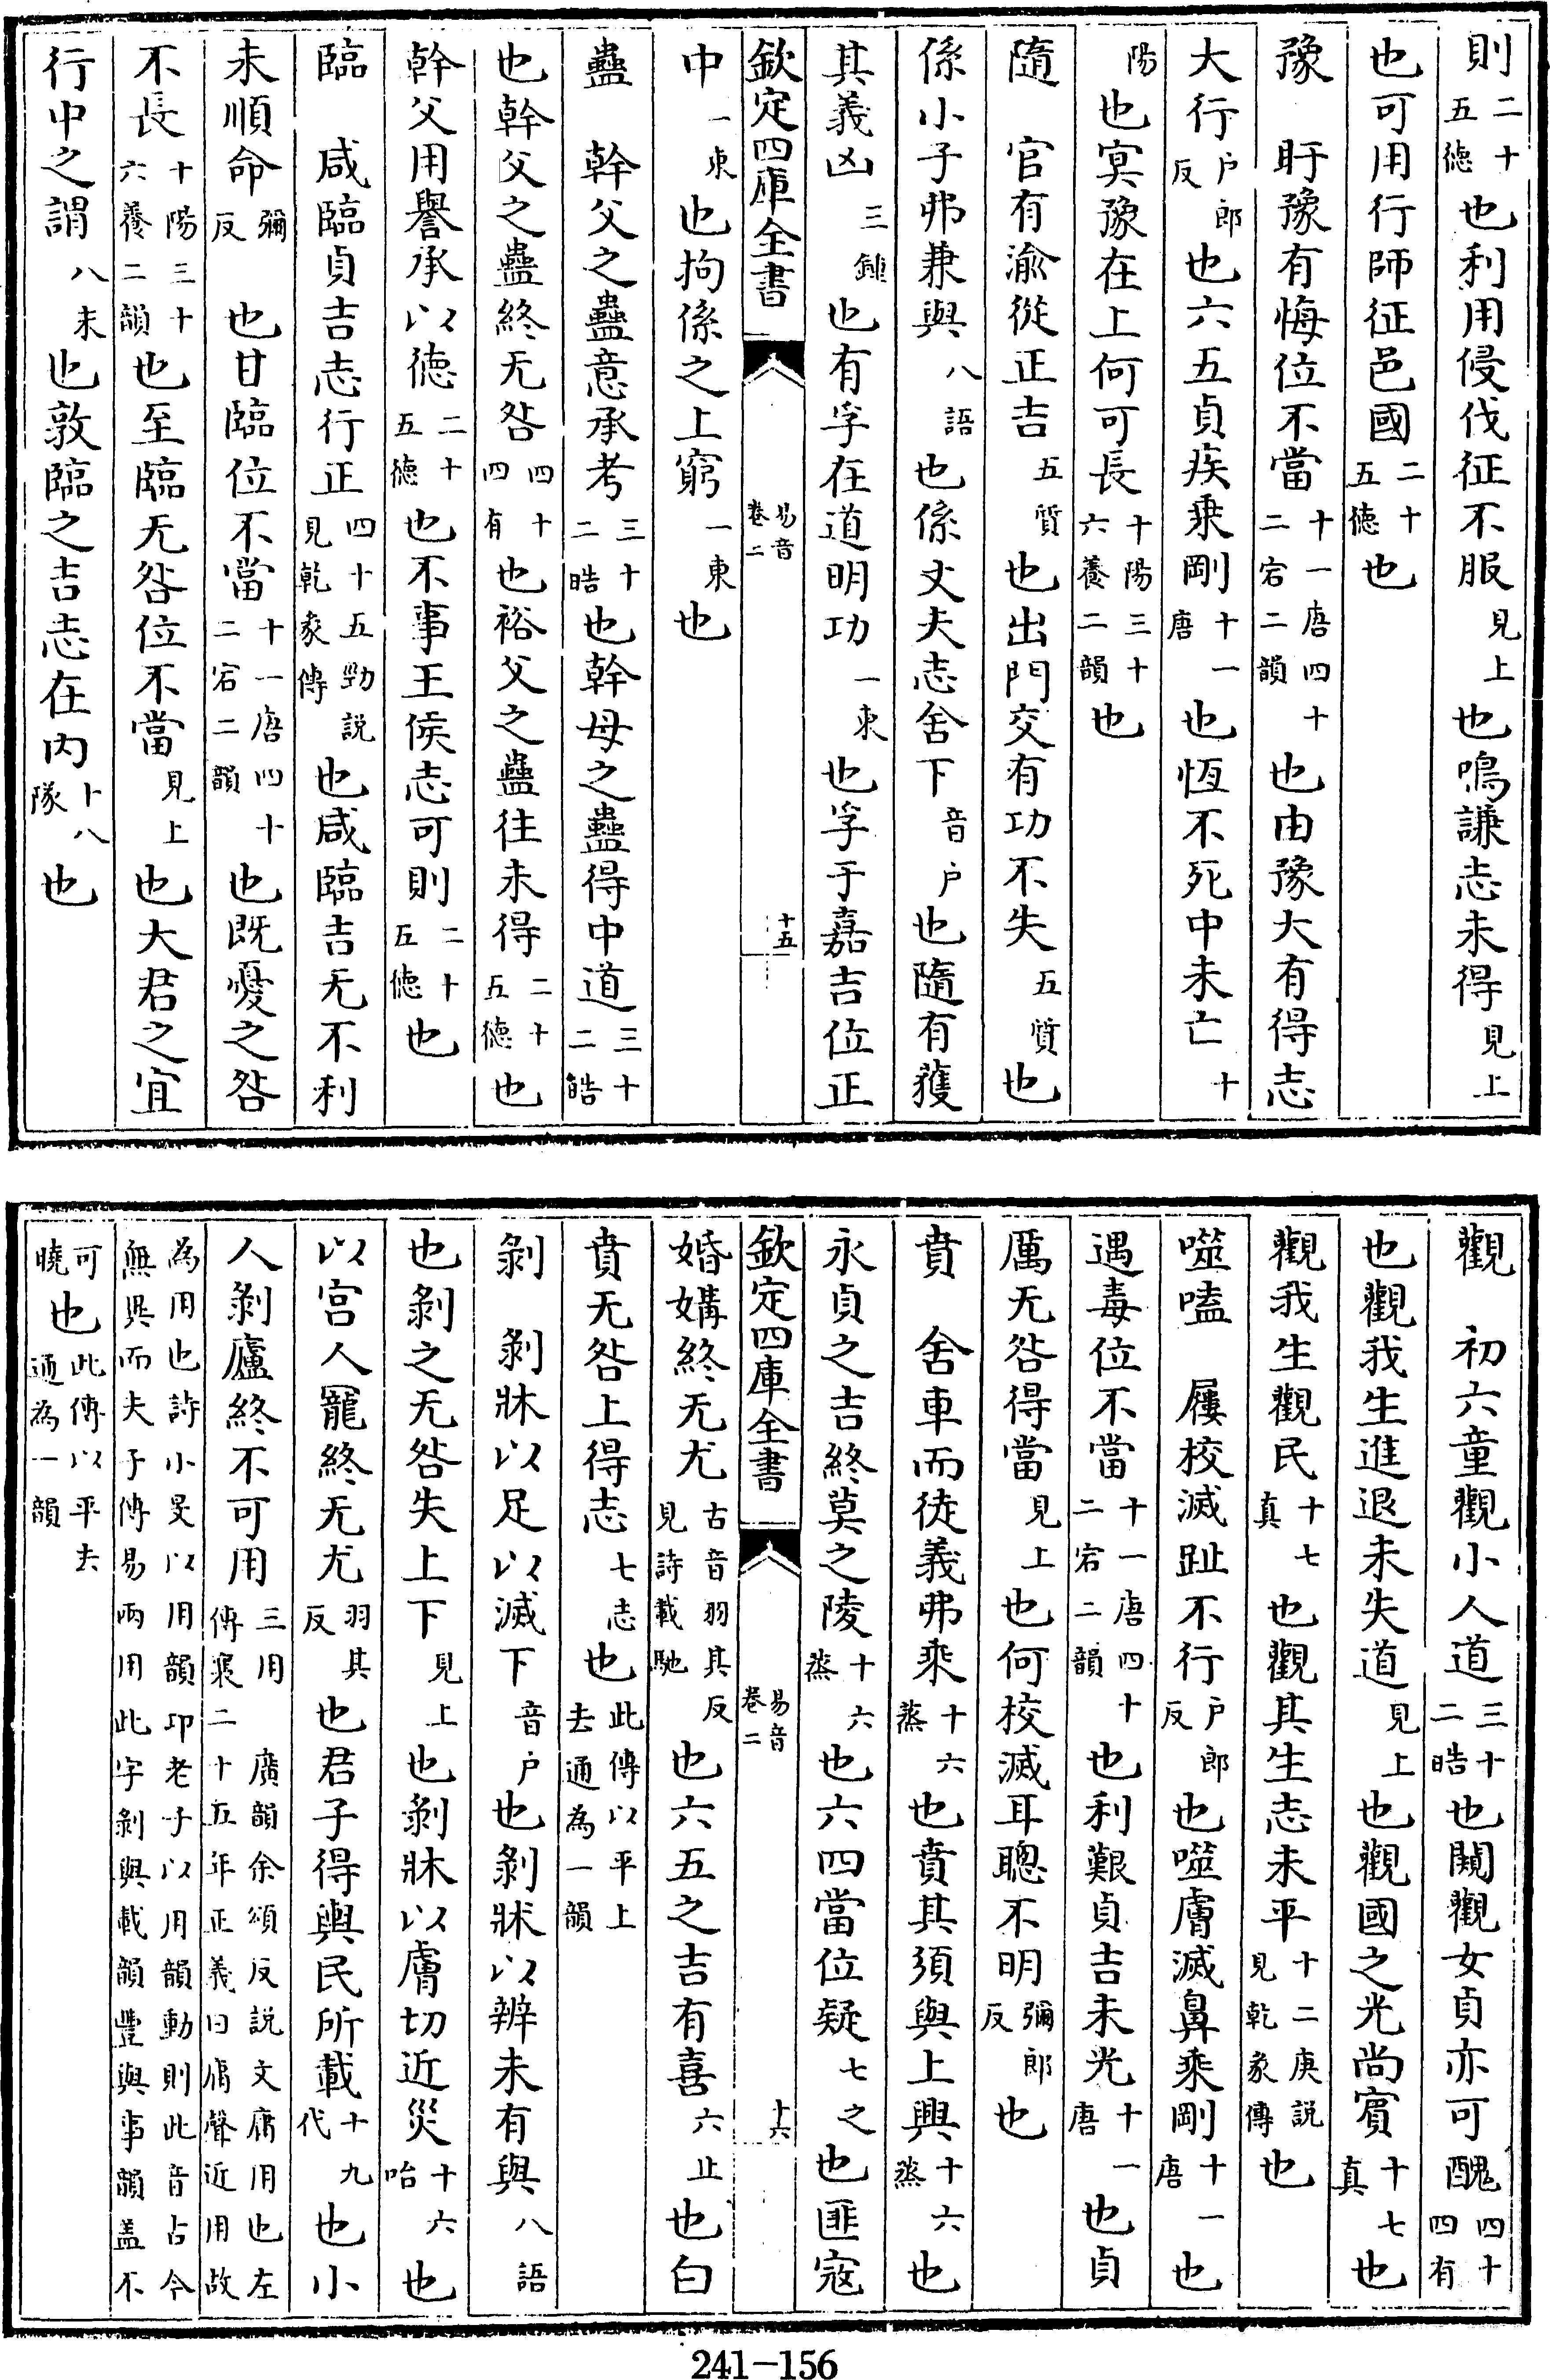 則二十五德也利用侵伐征不服見上也鳴謙志未得見上
也可用行師征邑國二十五德也
豫　盱豫有悔位不當十一唐四十二宕二韻也由豫大有得志
大行户郎反也六五貞疾乗剛十一唐也恆不死中未亡十
陽也冥豫在上何可長十陽三十六養二韻也
隨　官有渝從正吉五質也出門交有功不失五質也
係小子弗兼與八語也係丈夫志舍下音户也隨有獲
其義凶三鍾也有孚在道明功一東也孚于嘉吉位正
欽定四庫全書　易音卷二　十五
中一東也拘係之上窮一東也
蠱　幹父之蠱意承考三十二皓也幹母之蠱得中道三十二皓
也幹父之蠱終无咎四十四有也裕父之蠱往未得二十五德也
幹父用譽承以德二十五德也不事王侯志可則二十五德也
臨　咸臨貞吉志行正四十五勁説見乾彖傳也咸臨吉无不利
未順命彌反　也甘臨位不當十一唐四十二宕二韻也既憂之咎
不長十陽三十六養二韻也至臨无咎位不當見上也大君之宜
行中之謂八未也敦臨之吉志在内十八隊也
觀　初六童觀小人道三十二皓也闚觀女貞亦可醜四十四有
也觀我生進退未失道見上也觀國之光尚賓十七真也
觀我生觀民十七真也觀其生志未平十二庚説見乾彖傳也
噬嗑　屨校滅趾不行户郎反也噬膚滅鼻乘剛十一唐也
遇毒位不當十一唐四十二宕二韻也利艱貞吉未光十一唐也貞
厲无咎得當見上也何校滅耳聰不明彌郎反也
賁　舍車而徒義弗乘十六蒸也賁其須與上興十六蒸也
永貞之吉終莫之陵十六蒸也六四當位疑七之也匪寇
欽定四庫全書　易音卷二　十六
婚媾終无尤古音羽其反見詩載馳也六五之吉有喜六止也白
賁无咎上得志七志也此傳以平上去通為一韻
剝　剝牀以足以滅下音户也剝牀以辨未有與八語
也剝之无咎失上下見上也剝牀以膚切近災十六咍也
以宫人寵終无尤羽其反也君子得輿民所載十九代也小
人剝廬終不可用三用　廣韻余頌反説文庸用也左傳襄二十五年正義曰庸聲近用故
為用也詩小旻以用韻邛老子以用韻動則此音占今無異而夫子傳易兩用此字剝與載韻豐與事韻盖不
可曉也此傳以平去通為一韻
241-156